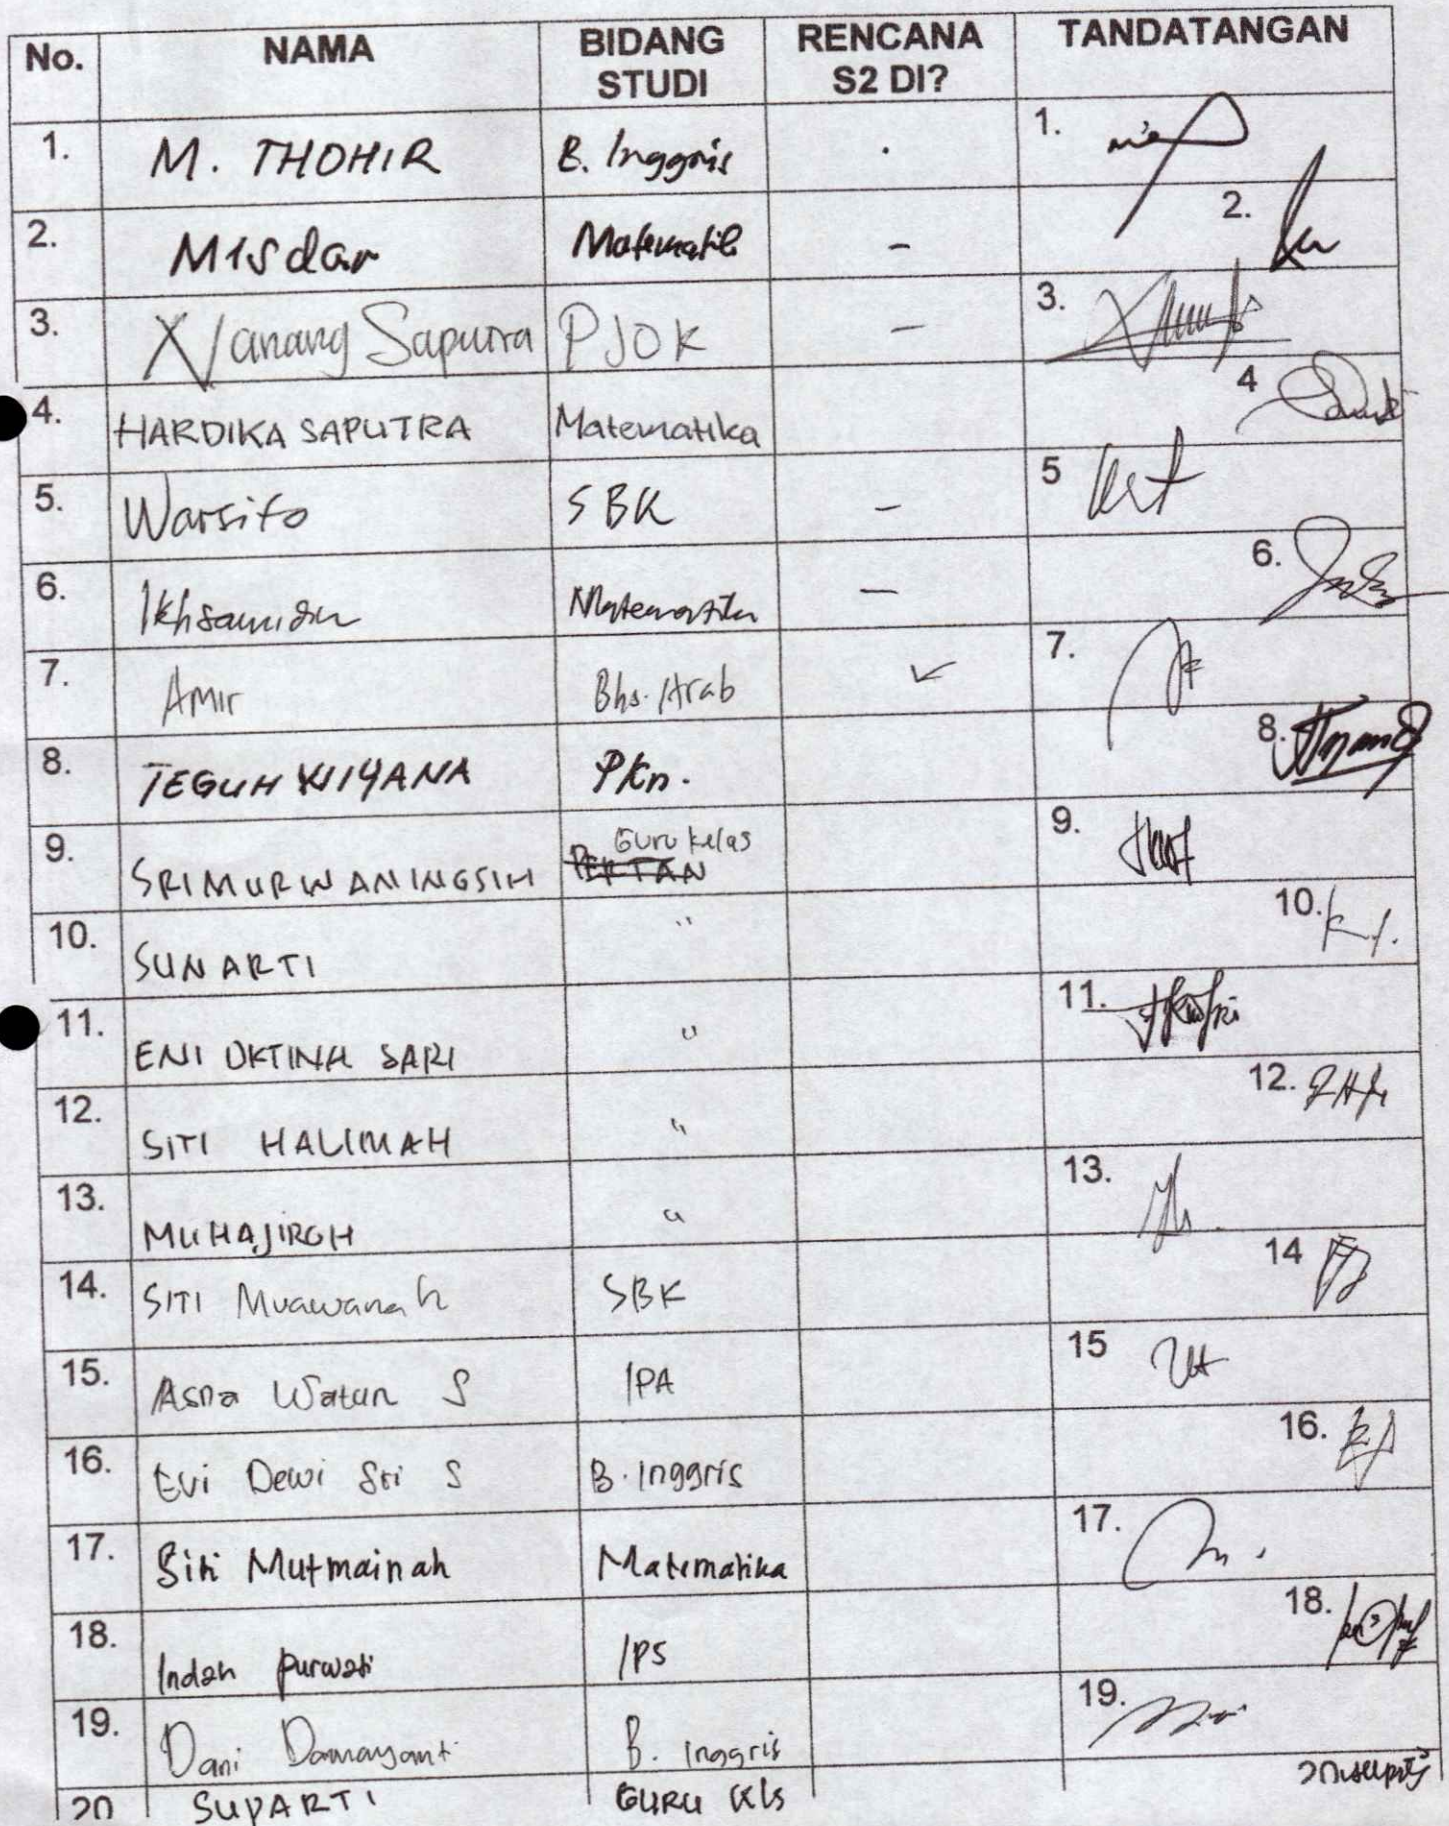 No. NAMA BIDANG STUDI RENCANA S2 DI? TANDATANGAN
1. M. THOHIR B. Inggris . 1.
2. Misdar Matematik - 2.
3. Nanang Saputra PJOK - 3.
4. HARDIKA SAPUTRA Matematika 4
5. Warsito SBK - 5
6. Matematika - 6.
7. Amir Bhs. Arab ✓ 7.
8. TEGUH WIYANA PKn. 8.
9. SRI MURWANINGSIH Guru Kelas 9.
10. SUNARTI " 10.
11. ENI OKTINA SARI " 11.
12. SITI HALIMAH " 12.
13. MUHAJIROH " 13.
14. SITI Muawanah SBK 14
15. Asna Watun S IPA 15
16. Evi Dewi Sri S B. Inggris 16.
17. Siti Mutmainah Matematika 17.
18. Indah purwati IPS 18.
19. Dani Damayanti B. Inggris 19.
20 SUPARTI GURU Kls 20